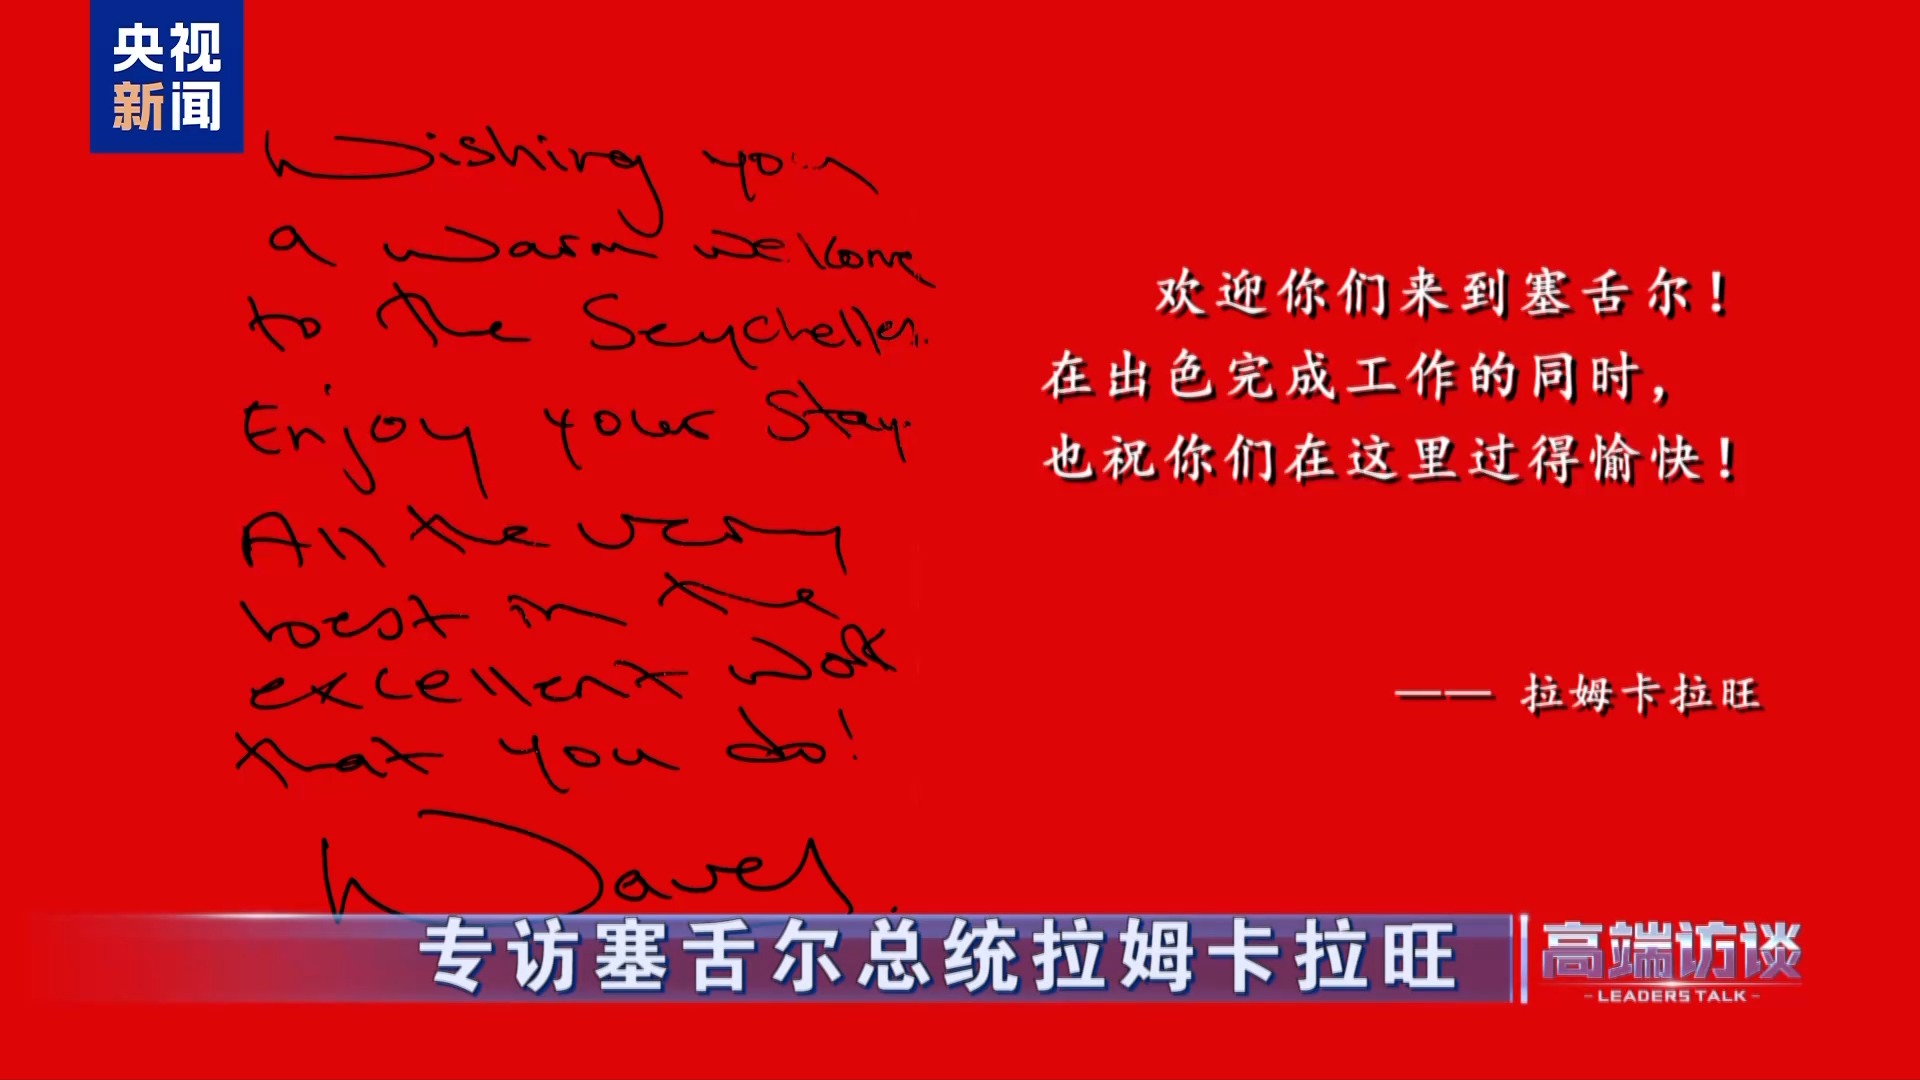 央视
新闻
Wishing you
a warm welcome
to the Seychelles.
Enjoy your stay.
All the very
best in the
excellent work
that you do!
Wavel.
欢迎你们来到塞舌尔！
在出色完成工作的同时，
也祝你们在这里过得愉快！
—— 拉姆卡拉旺
专访塞舌尔总统拉姆卡拉旺
高端访谈
-LEADERS TALK-